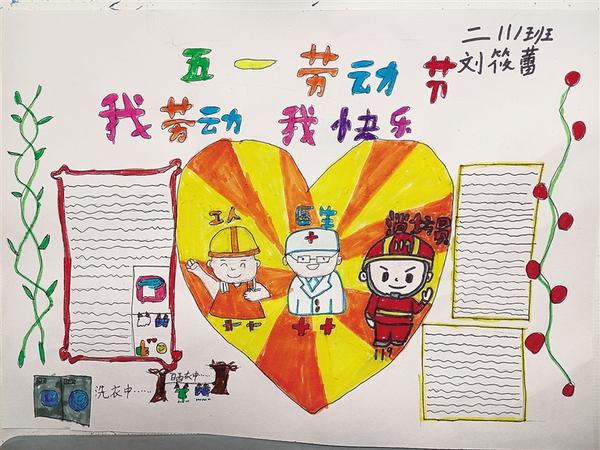 二111班
刘筱蕾
五一劳动节
我劳动 我快乐
工人
医生
消防员
119
洗衣中……
晒衣中……